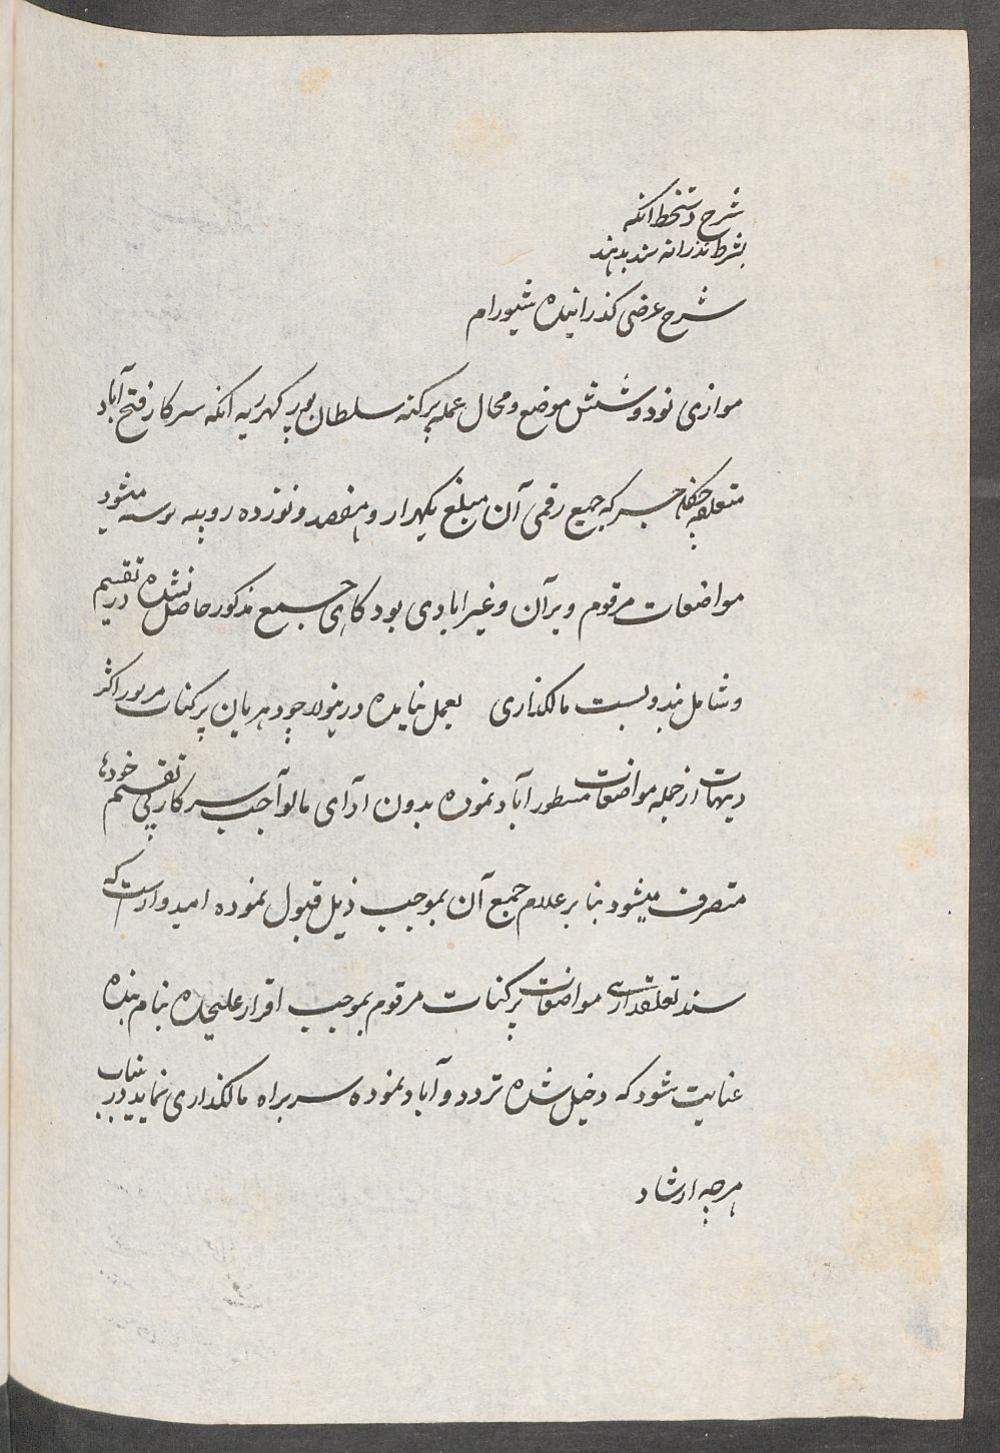 شرح دستخط انکه
بشرط نذرانه سند بدهند
شرح عرضی کذرانیده شیورام
موازی نود و شش موضع و محال عمله پرکنه سلطان پور کهریه انکه سرکار فتح آباد
متعلقه چکله که جمع رقمی آن مبلغ یکهزار و هفصد و نوزده روپیه میشود
مواضعات مرقوم ویرآن و غیرابادی بود کاهی جمع مذکور حاصل نشده در تقسیم
و شامل بندوبست مالکذاری بعمل نیامده درینولا چودهریان پرکنات مزبور اکثر
دیهات ازجمله مواضعات مسطور آباد نموده بدون ادآی مالوآجب سرکار بی تقسیم خودها
متصرف میشود بنا بر علام جمع آن بموجب ذیل قبول نموده امیدوارست که
سند تعلقداری مواضعات پرکنات مرقوم بموجب اقرار علیحده بنام بنده
عنایت شود که دخیل شده تردد و آباد نموده سربراه مالکذاری نماید درین باب
هرچه ارشاد